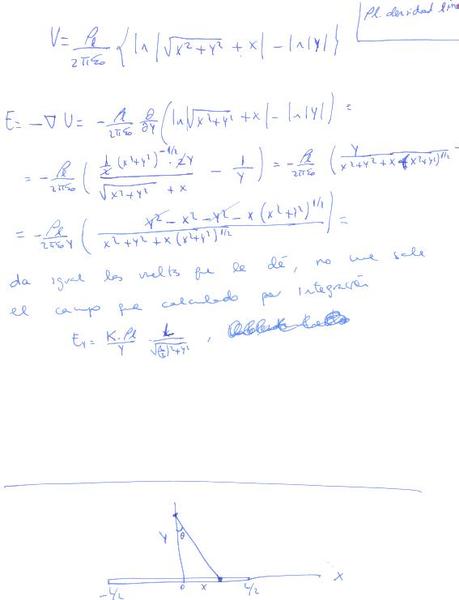 V = ρl/2πε₀ { ln|√x²+y² + x| − ln|y| }
ρl densidad
E = −∇U = −ρl/2πε₀ ∂/∂y ( ln|√x²+y² + x| − ln|y| ) =
= −ρl/2πε₀ ( ½(x²+y²)^−1/2 · 2y / √x²+y² + x − 1/y ) = −ρl/2πε₀ ( y / x²+y² + x(x²+y²)^1/2 −
= −ρl/2πε₀y ( y² − x² − y² − x(x²+y²)^1/2 / x²+y² + x(x²+y²)^1/2 ) =
da igual las vueltas que le dé, no me sale
el campo que calculado por integración
Ey = K·ρl/y · L/√(L/2)²+y² ,
y θ
−L/2 0 x L/2 X